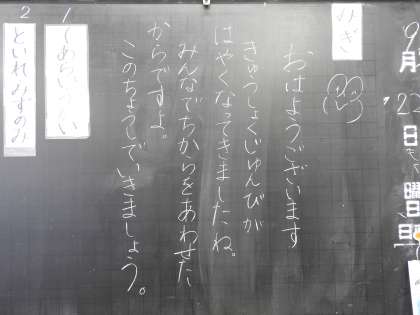 9月
22日
曜日
みぎ
おはようございます
きゅうしょくじゅんびが
はやくなってきましたね。
みんなでちからをあわせた
からですよ。
このちょうしでいきましょう。
1
てあらいうがい
2
といれみずのみ